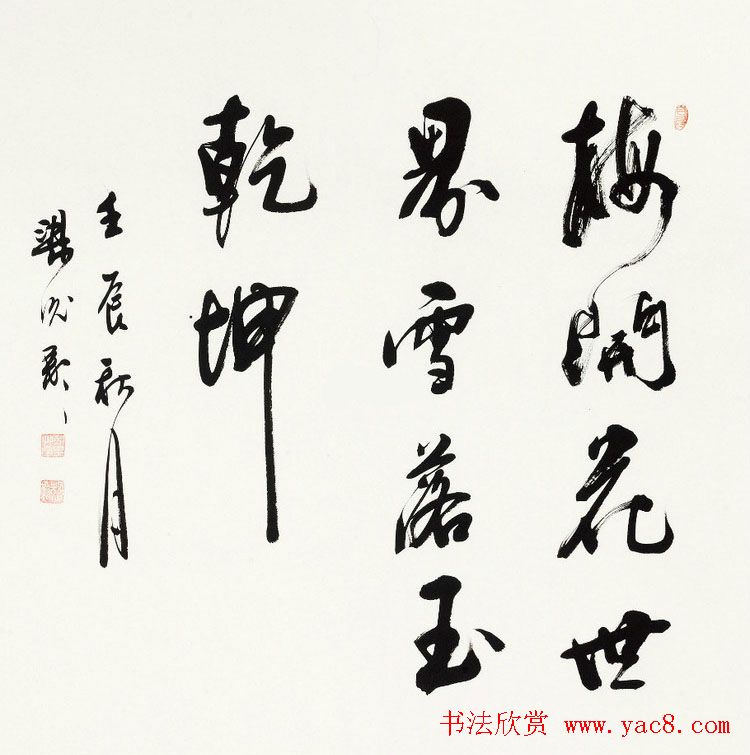 梅開花世
界雪落玉
乾坤
壬辰秋月
书法欣赏 www.yac8.com